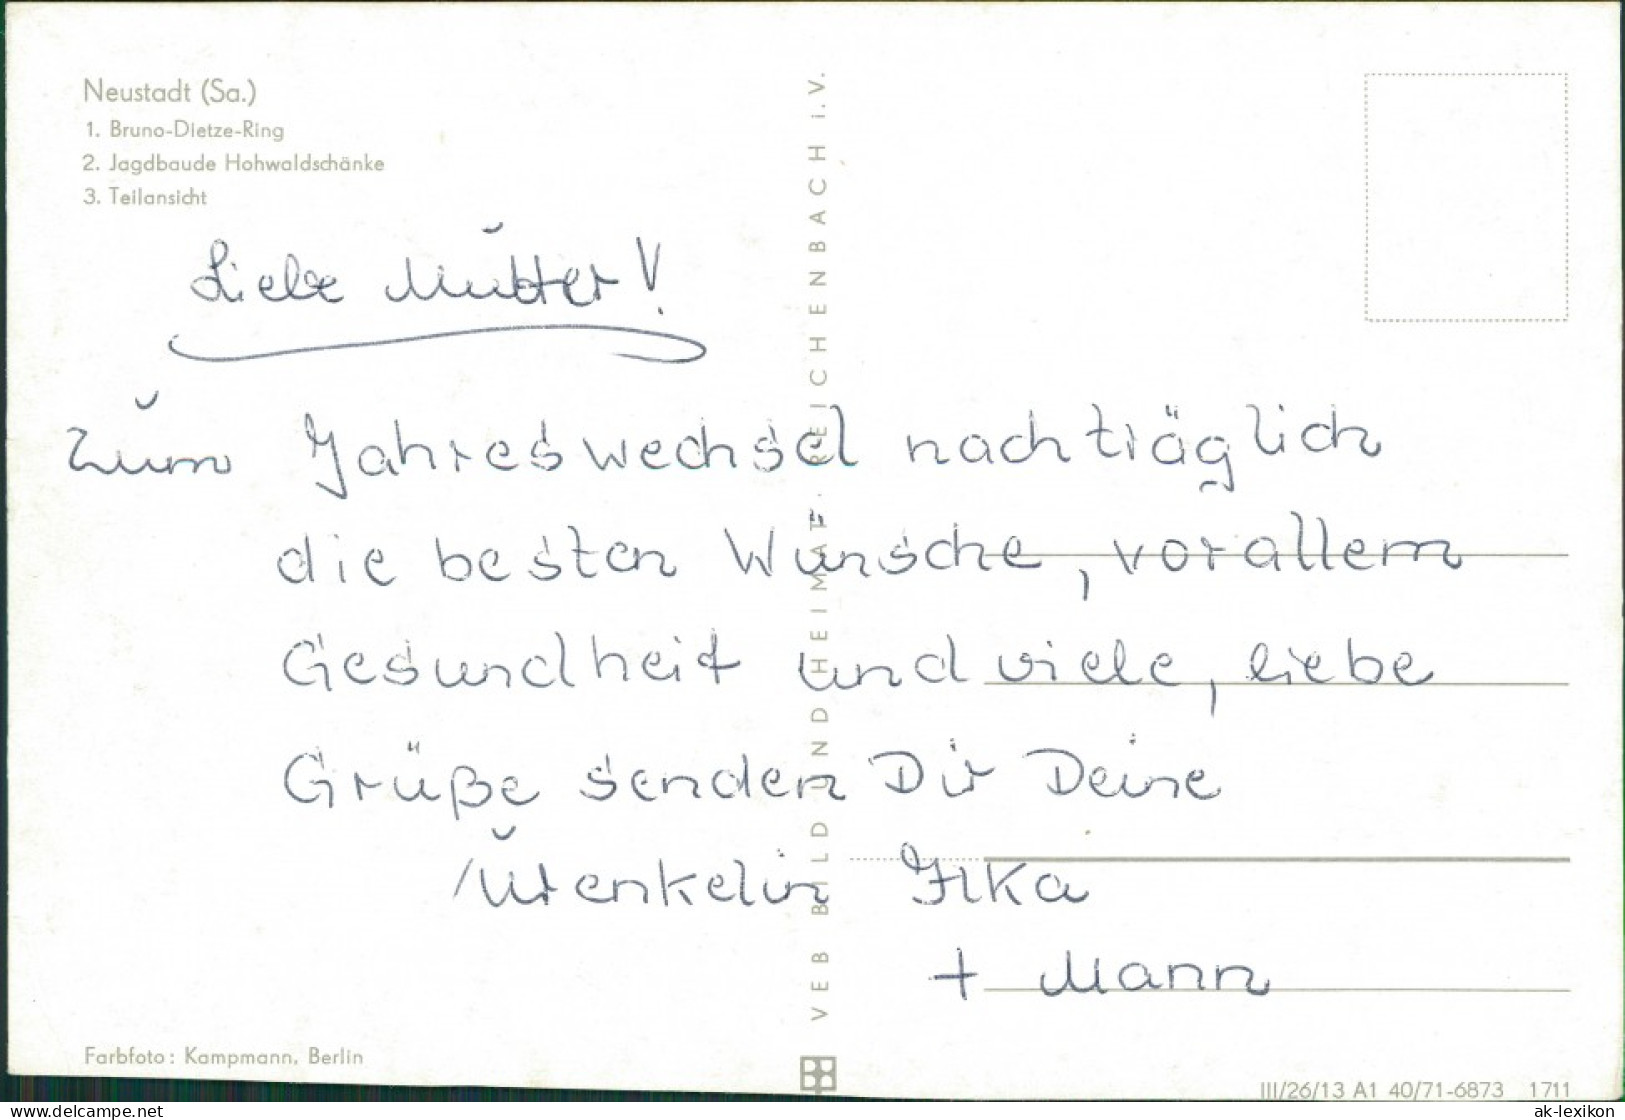 Neustadt (Sa.)
1. Bruno-Dietze-Ring
2. Jagdbaude Hohwaldschänke
3. Teilansicht
Liebe Mutter!
Zum Jahreswechsel nachträglich
die besten Wünsche, vorallem
Gesundheit und viele, liebe
Grüße senden Dir Deine
Urenkelin Ilka
+ Mann
VEB BILD UND HEIMAT · REICHENBACH i.V.
Farbfoto: Kampmann, Berlin
III/26/13 A1 40/71-6873 1711
ak-ansichtskarten.de
ak-lexikon